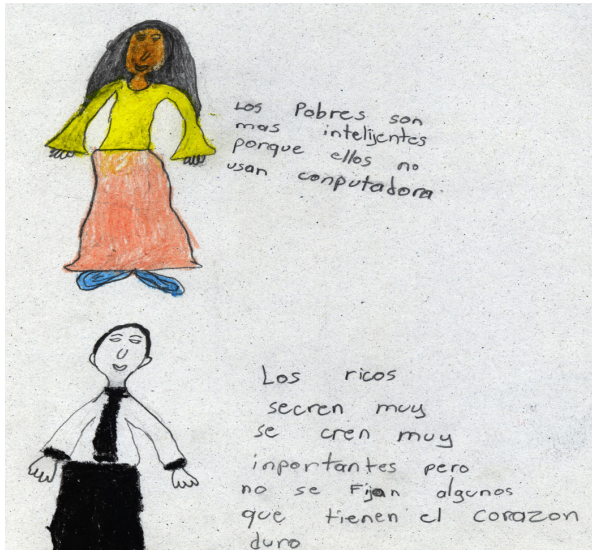 Los Pobres son
mas intelijentes
porque ellos no
usan conputadora
Los ricos
secren muy
se cren muy
inportantes pero
no se Fijan algunos
que tienen el corazon
duro